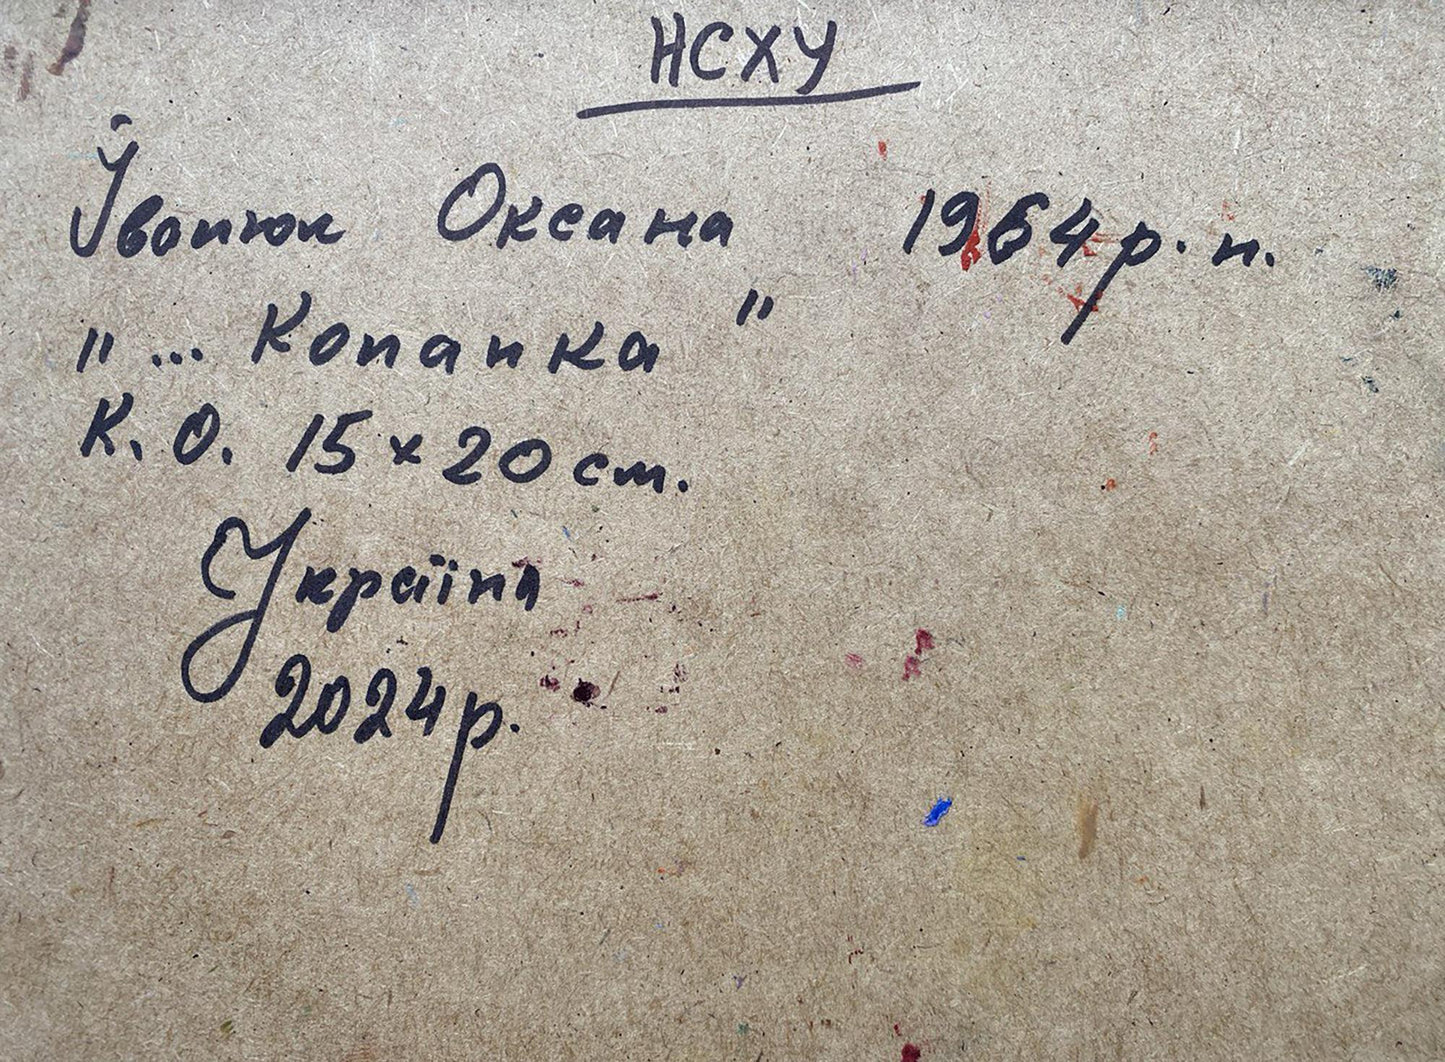 НСХУ
Іванюк Оксана 1964 р. н.
"... Копанка"
К. О. 15×20 см.
Україна
2024 р.